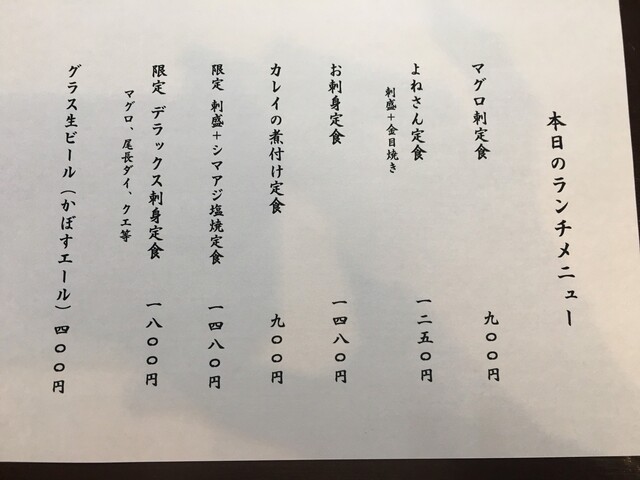 本日のランチメニュー
マグロ刺定食 九〇〇円
よねさん定食 一二五〇円
刺盛+金目焼き
お刺身定食 一四八〇円
カレイの煮付け定食 九〇〇円
限定 刺盛+シマアジ塩焼定食 一四八〇円
限定 デラックス刺身定食 一八〇〇円
マグロ、尾長ダイ、クエ等
グラス生ビール(かぼすエール) 四〇〇円